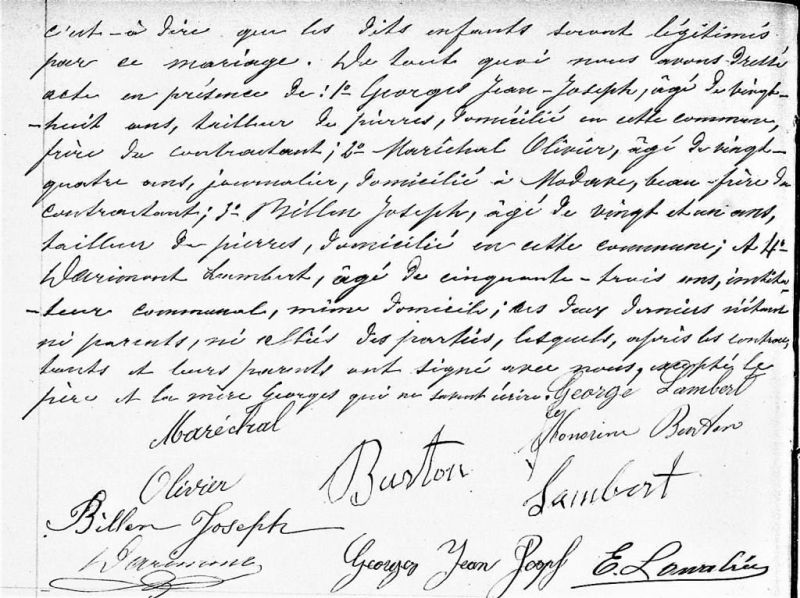 c'est-à dire que les dits enfants seront légitimés
par ce mariage. De tout quoi nous avons dressé
acte en présence de: 1o Georges Jean-Joseph, âgé de vingt-
-huit ans, tailleur de pierres, domicilié en cette commune,
frère du contractant; 2o Maréchal Olivier, âgé de vingt-
quatre ans, journalier, domicilié à Modave, beau-frère du
contractant; 3o Billen Joseph, âgé de vingt et un ans,
tailleur de pierres, domicilié en cette commune; et 4o
Darimont Lambert, âgé de cinquante-trois ans, institu-
-teur communal, même domicile; ces deux derniers n'étant
ni parents, ni alliés des parties, lesquels, après les contrac-
tants et leurs parents ont signé avec nous, excepté le
père et la mère Georges qui ne savent écrire. George Lambert
Maréchal Honorine Burton
Olivier Burton Lambert
Billen Joseph
Darimont Georges Jean Joseph E.